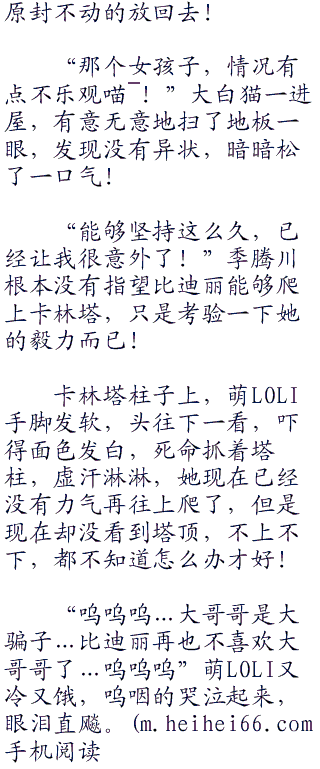 原封不动的放回去！
“那个女孩子，情况有
点不乐观喵ˉ！”大白猫一进
屋，有意无意地扫了地板一
眼，发现没有异状，暗暗松
了一口气！
“能够坚持这么久，已
经让我很意外了！”季腾川
根本没有指望比迪丽能够爬
上卡林塔，只是考验一下她
的毅力而已！
卡林塔柱子上，萌LOLI
手脚发软，头往下一看，吓
得面色发白，死命抓着塔
柱，虚汗淋淋，她现在已经
没有力气再往上爬了，但是
现在却没看到塔顶，不上不
下，都不知道怎么办才好！
“呜呜呜…大哥哥是大
骗子…比迪丽再也不喜欢大
哥哥了…呜呜呜”萌LOLI又
冷又饿，呜咽的哭泣起来，
眼泪直飚。(m.heihei66.com
手机阅读